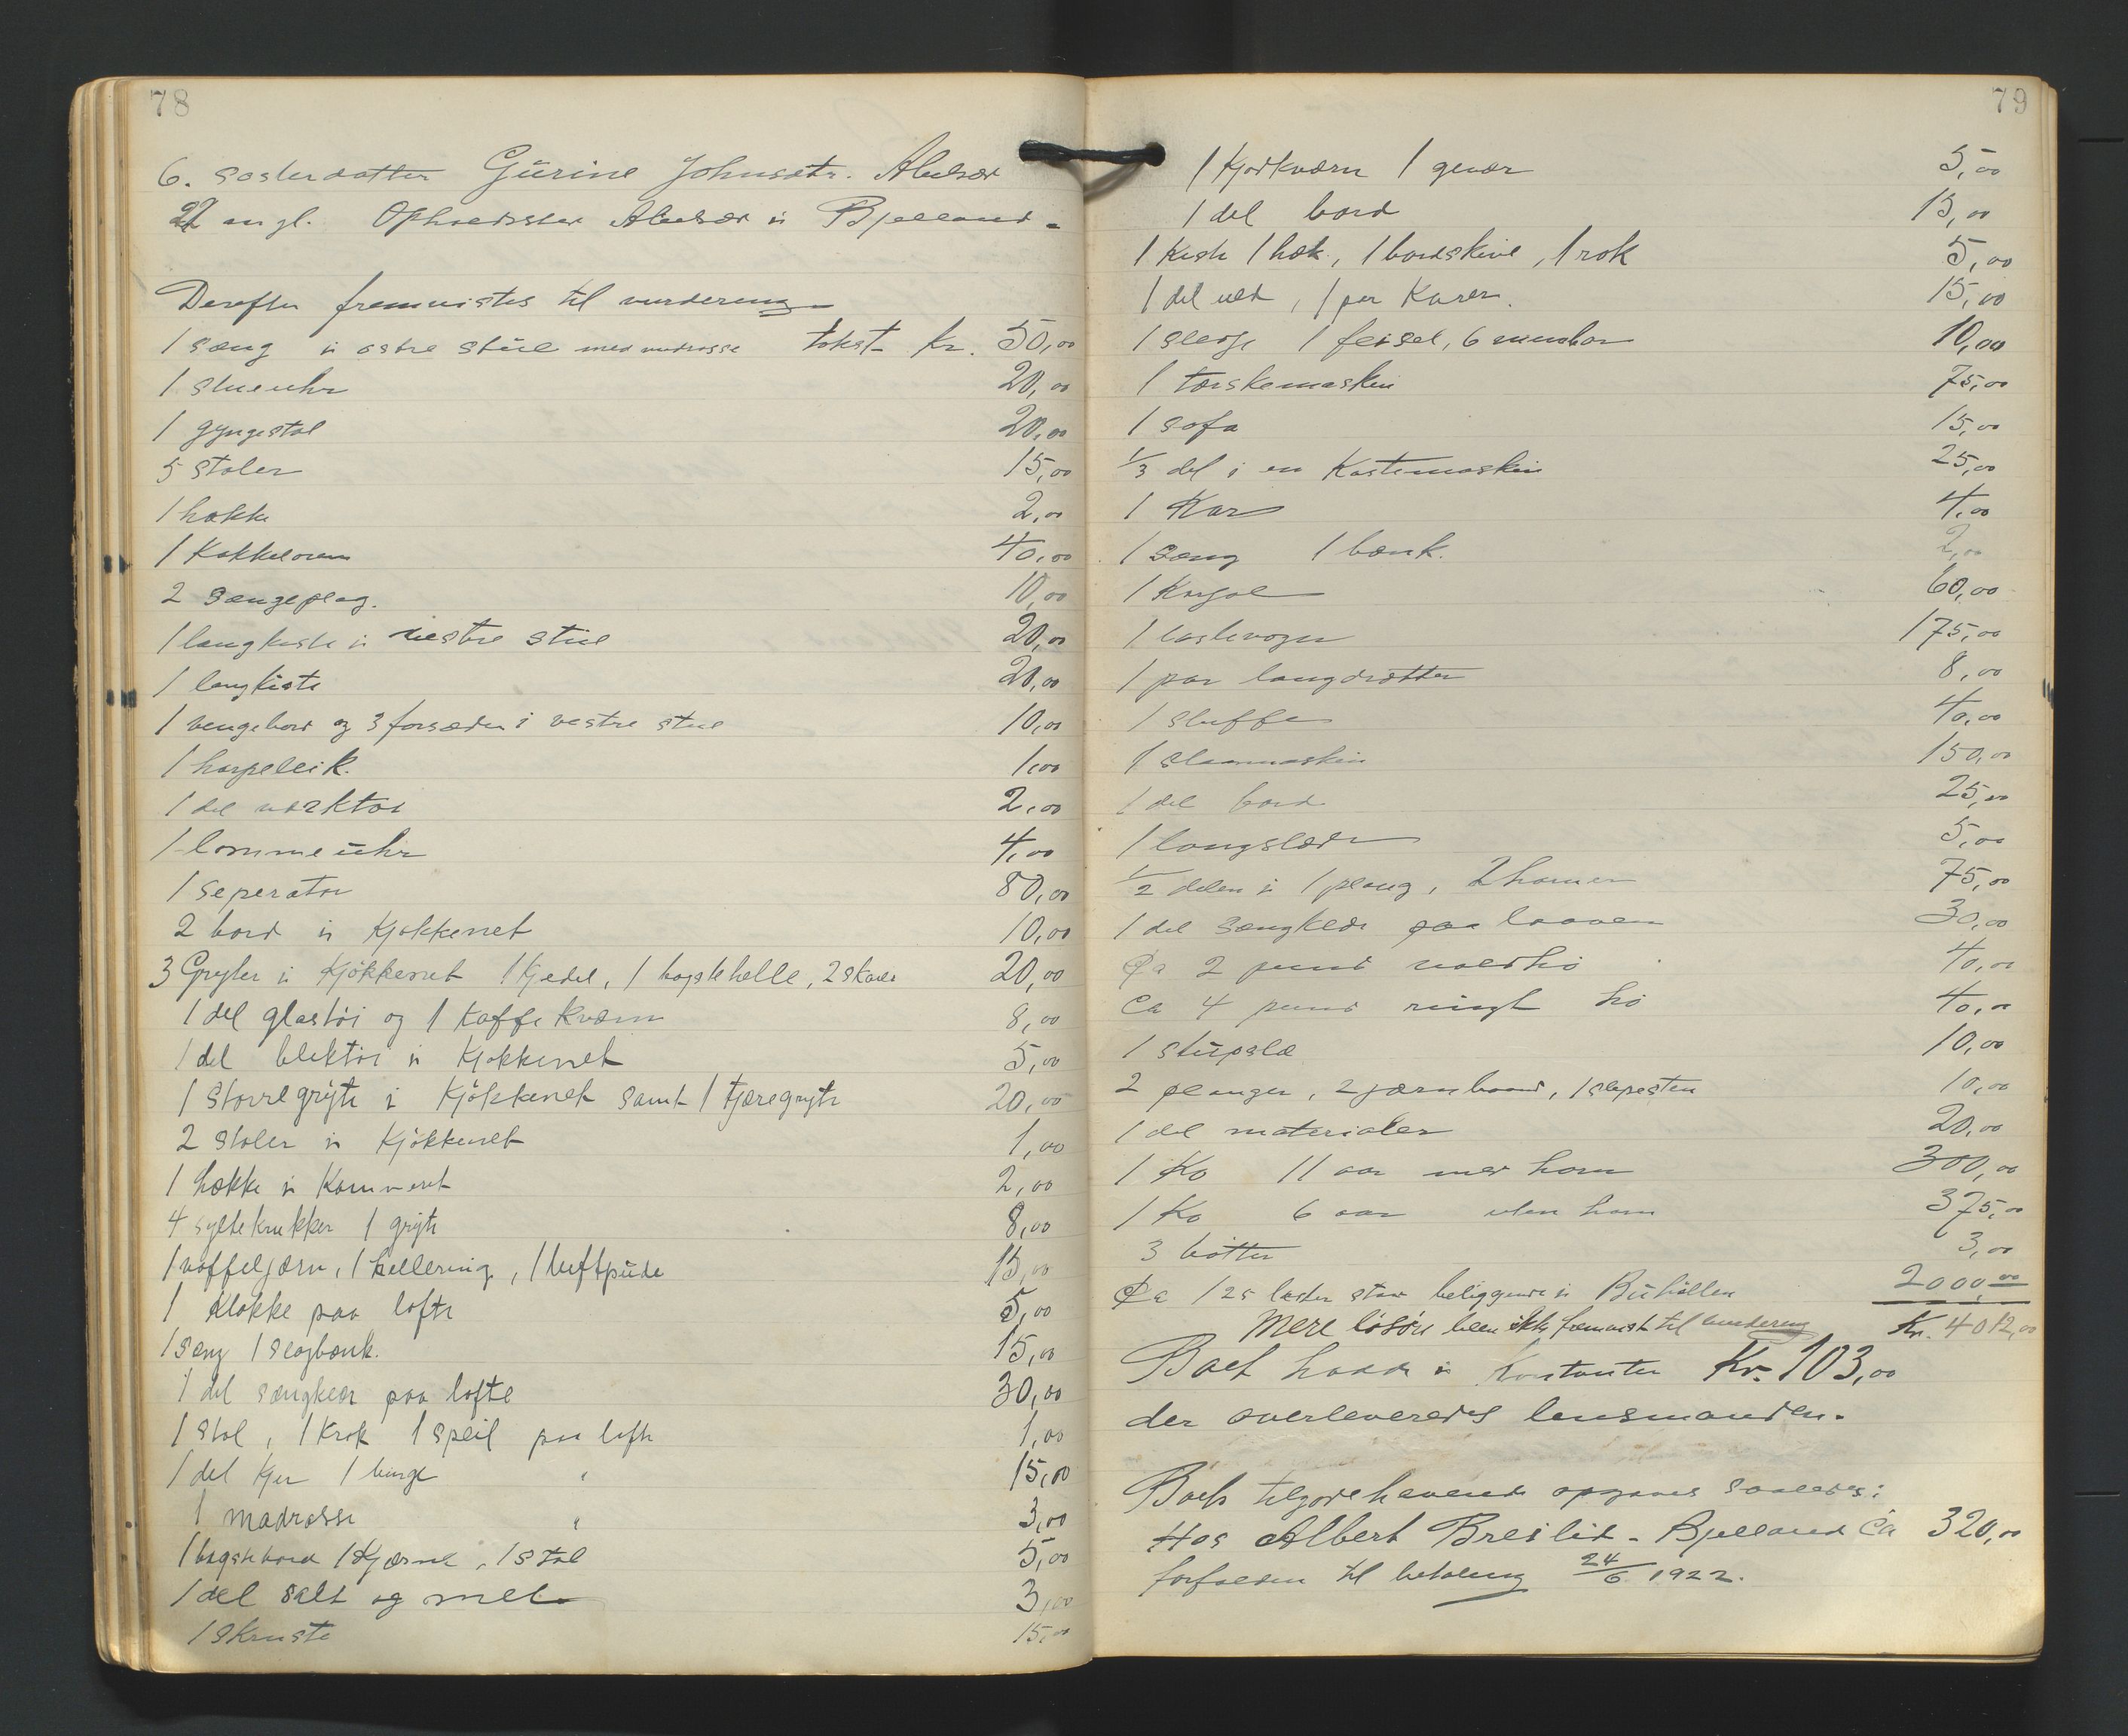 78
6. søsterdatter Gurine Johnsdtr. Abelsæt
22 aar gl. Opholdssted Abelsæt i Bjelland.
Derefter fremvistes til vurdering
1 sæng i østre stue med madrasse takst kr. 50,00
1 stueuhr 20,00
1 gyngestol 20,00
5 stoler 15,00
1 hække 2,00
1 Kakkelovn 40,00
2 sængeplag. 10,00
1 langkiste i vestre stue 20,00
1 langkiste 20,00
1 vengebord og 3 forsæder i vestre stue 10,00
1 harpeleik. 1,00
1 del værktøi 2,00
1 lommeuhr 4,00
1 seperator 80,00
2 bord i Kjøkkenet 10,00
3 Gryter i Kjøkkenet 1 Kjedel, 1 bagstehelle, 2 skaaler 20,00
1 del glastøi og 1 Kaffekværn 8,00
1 del bliktøi i Kjøkkenet 5,00
1 større gryte i Kjøkkenet samt 1 tjæregryte 20,00
2 stoler i Kjøkkenet 1,00
1 hække i Kammeret 2,00
4 syltekrukker 1 gryte 8,00
1 vaffeljærn, 1 hellering, 1 luftpude 15,00
1 Klokke paa lofte 5,00
1 sæng 1 slagbænk. 15,00
1 del sængklær paa lofte 30,00
1 stol, 1 Krak 1 speil paa lofte 1,00
1 del Kjer 1 binge " 15,00
1 madrasse " 3,00
1 bagstebord 1 Kjærne, 1 stol 5,00
1 del salt og mel 3,00
1 skruste 15,00
79
1 Kjødkværn 1 gevær 5,00
1 del bord 15,00
1 Kiste 1 hæk, 1 bordskive, 1 rok 5,00
1 del ved, 1 par Karer. 15,00
1 sledge 1 feisel, 6 minebor 10,00
1 tærskemaskin 75,00
1 sofa 15,00
1/3 del i en Kastemaskin 25,00
1 Kar 4,00
1 sæng 1 bænk. 2,00
1 Karjol 60,00
1 lastevogn 175,00
1 par langdrætter 8,00
1 sluffe 40,00
1 slaamaskin 150,00
1 del bord 25,00
1 langslæde 5,00
1/2 delen i 1 plaug, 2 harver 75,00
1 del sængklæde paa laaven 30,00
Ca 2 pund voldhø 40,00
Ca 4 pund ringt hø 40,00
1 stupslæ 10,00
2 plauger, 2 jærnbaand, 1 slipesten 10,00
1 del materialer 20,00
1 Ko 11 aar med horn 300,00
1 Ko 6 aar uten horn 375,00
3 bøtter 3,00
Ca 125 læster stav beliggende i Buhøllen 2000,00
Mere løsøre blev ikke fremvist til vurdering Kr. 4012,00
Boet hadde i Kontanter Kr. 103,00
der overleveredes lensmanden.
Boets tilgodehavende opgaves saaledes:
Hos Albert Breilid - Bjelland ca 320,00
forfalden til betaling 24/6 1922.